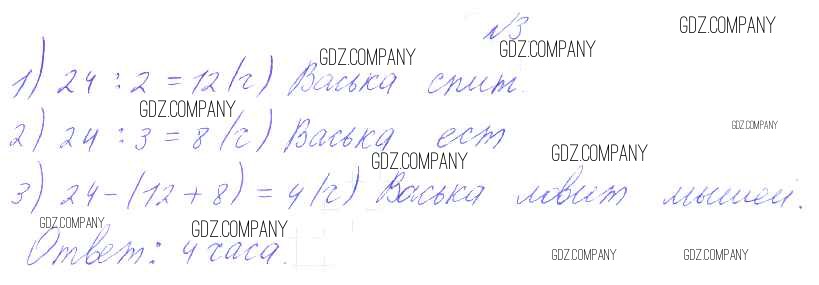 №3
GDZ.COMPANY
GDZ.COMPANY
GDZ.COMPANY
1) 24 : 2 = 12 (ч) Васька спит.
GDZ.COMPANY
GDZ.COMPANY
2) 24 : 3 = 8 (ч) Васька ест
GDZ.COMPANY
GDZ.COMPANY
3) 24 - (12 + 8) = 4 (ч) Васька ловит мышей.
GDZ.COMPANY
GDZ.COMPANY
Ответ: 4 часа.
GDZ.COMPANY
GDZ.COMPANY